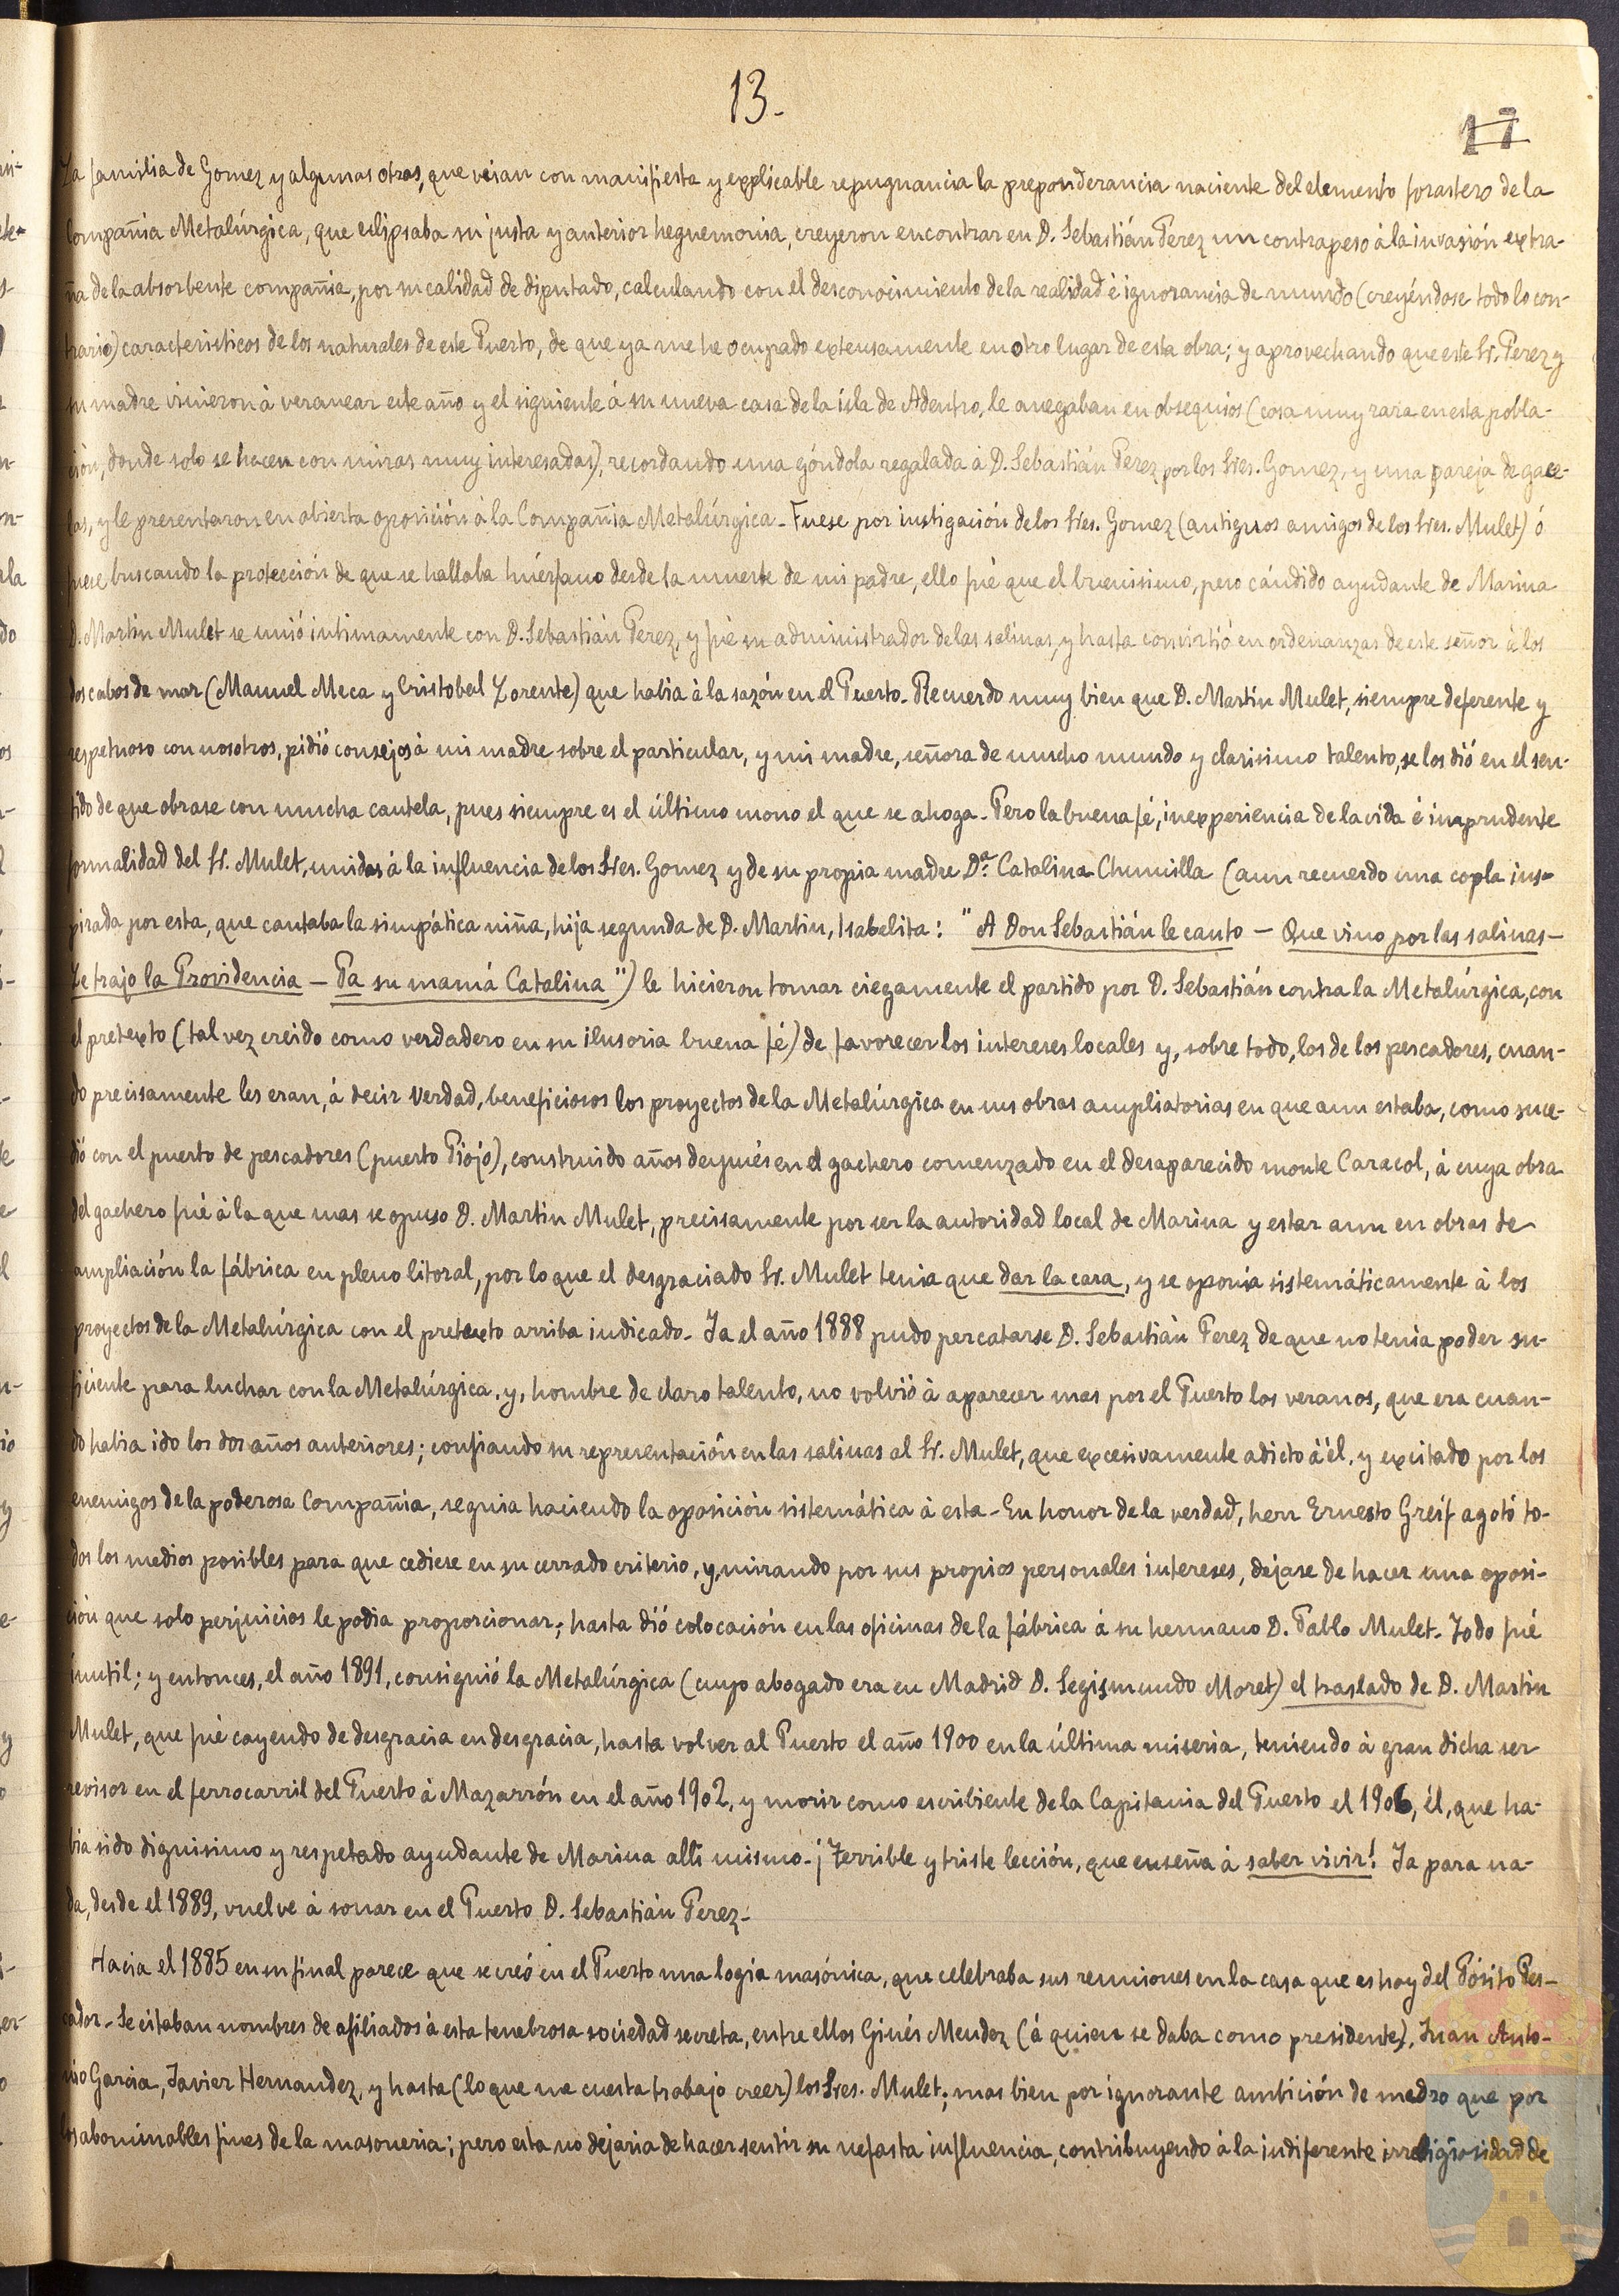 13.
17
La familia de Gomez y algunas otras, que veian con manifiesta y explicable repugnancia la preponderancia naciente del elemento forastero de la
Compañia Metalúrgica, que eclipsaba su justa y anterior heguemonia, creyeron encontrar en D. Sebastián Perez un contrapeso à la invasión extra-
ña de la absorbente compañia, por su calidad de diputado, calculando con el desconocimiento de la realidad è ignorancia de mundo (creyéndose todo lo con-
trario) caracteristicos de los naturales de este Puerto, de que ya me he ocupado extensamente en otro lugar de esta obra; y aprovechando que este Sr. Perez y
su madre vinieron à veranear este año y el siguiente á su nueva casa de la isla de Adentro, le anegaban en obsequios (cosa muy rara en esta pobla-
ción, donde solo se hacen con miras muy interesadas), recordando una góndola regalada à D. Sebastián Perez por los Sres. Gomez, y una pareja de gace-
las, y le presentaron en abierta oposición à la Compañia Metalúrgica. Fuese por instigación de los Sres. Gomez (antiguos amigos de los Sres. Mulet) ó
fuese buscando la protección de que se hallaba huérfano desde la muerte de mi padre, ello fué que el buenisimo, pero cándido ayudante de Marina
D. Martin Mulet se unió intimamente con D. Sebastián Perez, y fué su administrador de las salinas, y hasta convirtió en ordenanzas de este señor à los
dos cabos de mar (Manuel Meca y Cristobal Lorente) que habia à la sazón en el Puerto. Recuerdo muy bien que D. Martin Mulet, siempre deferente y
respetuoso con nosotros, pidió consejos à mi madre sobre el particular, y mi madre, señora de mucho mundo y clarisimo talento, se los dió en el sen-
tido de que obrase con mucha cautela, pues siempre es el último mono el que se ahoga. Pero la buena fé, inexperiencia de la vida é imprudente
formalidad del Sr. Mulet, unidas á la influencia de los Sres. Gomez y de su propia madre Dª Catalina Chumilla (aun recuerdo una copla ins-
pirada por esta, que cantaba la simpática niña, hija segunda de D. Martin, Isabelita: "A Don Sebastián le canto – Que vino por las salinas –
Le trajo la Providencia – Pa su mamá Catalina") le hicieron tomar ciegamente el partido por D. Sebastián contra la Metalúrgica, con
el pretexto (tal vez creido como verdadero en su ilusoria buena fé) de favorecer los intereses locales y, sobre todo, los de los pescadores, cuan-
do precisamente les eran, á decir verdad, beneficiosos los proyectos de la Metalúrgica en sus obras ampliatorias en que aun estaba, como suce-
dió con el puerto de pescadores (puerto Piojo), construido años después en el gachero comenzado en el desaparecido monte Caracol, á cuya obra
del gachero fué à la que mas se opuso D. Martin Mulet, precisamente por ser la autoridad local de Marina y estar aun en obras de
ampliación la fábrica en pleno litoral, por lo que el desgraciado Sr. Mulet tenia que dar la cara, y se oponia sistemáticamente à los
proyectos de la Metalúrgica con el pretexto arriba indicado. Ya el año 1888 pudo percatarse D. Sebastián Perez de que no tenia poder su-
ficiente para luchar con la Metalúrgica, y, hombre de claro talento, no volvió à aparecer mas por el Puerto los veranos, que era cuan-
do habia ido los dos años anteriores; confiando su representación en las salinas al Sr. Mulet, que excesivamente adicto à él, y excitado por los
enemigos de la poderosa Compañia, seguia haciendo la oposición sistemática à esta. En honor de la verdad, herr Ernesto Greif agotó to-
dos los medios posibles para que cediese en su cerrado criterio, y, mirando por sus propios personales intereses, dejase de hacer una oposi-
ción que solo perjuicios le podia proporcionar; hasta dió colocación en las oficinas de la fábrica á su hermano D. Pablo Mulet. Todo fué
inutil; y entonces, el año 1891, consiguió la Metalúrgica (cuyo abogado era en Madrid D. Segismundo Moret) el traslado de D. Martin
Mulet, que fué cayendo de desgracia en desgracia, hasta volver al Puerto el año 1900 en la última miseria, teniendo à gran dicha ser
revisor en el ferrocarril del Puerto à Mazarrón en el año 1902, y morir como escribiente de la Capitania del Puerto el 1906, él, que ha-
bia sido dignisimo y respetado ayudante de Marina alli mismo. ¡Terrible y triste lección, que enseña à saber vivir! Ya para na-
da, desde el 1889, vuelve à sonar en el Puerto D. Sebastián Perez.
Hacia el 1885 en su final parece que se creó en el Puerto una logia masónica, que celebraba sus reuniones en la casa que es hoy del Pósito Pes-
cador. Se citaban nombres de afiliados à esta tenebrosa sociedad secreta, entre ellos Ginés Mendez (á quien se daba como presidente), Juan Anto-
nio Garcia, Javier Hernandez, y hasta (lo que me cuesta trabajo creer) los Sres. Mulet; mas bien por ignorante ambición de medro que por
los abominables fines de la masoneria; pero esta no dejaria de hacer sentir su nefasta influencia, contribuyendo à la indiferente irreligiosidad de